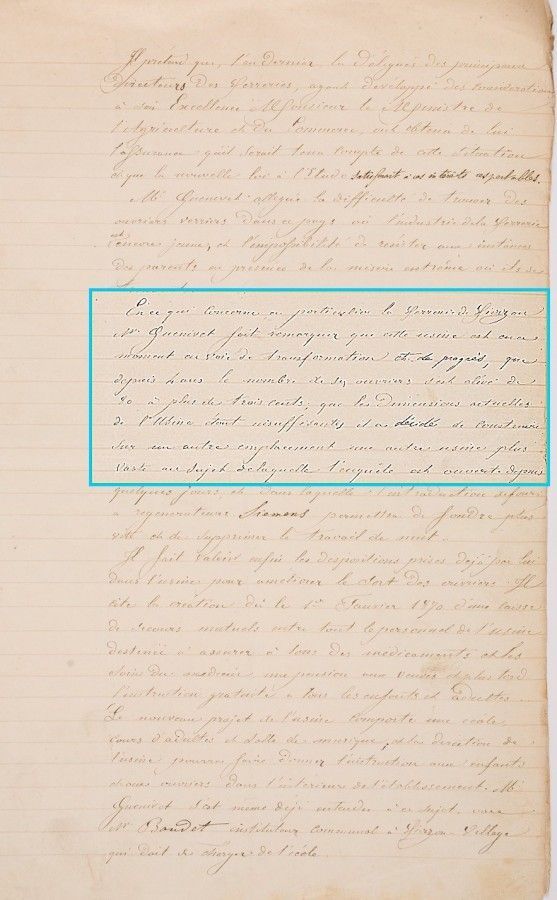 Il prétend que, l'an dernier les Délégués des principaux
Directeurs Des Verreries, ayant développé des considérations
à Son Excellence Monsieur le Ministre de
l'Agriculture et du Commerce, ont obtenu de lui
l'assurance qu'il serait tenu compte de cette situation
et que la nouvelle loi à l'Etude satisferait à ces intérêts respectables.
Mr Quenivet allègue la difficulté de trouver des
ouvriers verriers dans ce pays où l'industrie de la Verrerie
est encore jeune, et l'impossibilité de résister aux instances
Des parents en présence de la misère extrême où ils se
En ce qui concerne en particulier la Verrerie de Vierzon
Mr Quenivet fait remarquer que cette usine est en ce
moment en voie de transformation et de progrès, que
depuis 4 ans le nombre de ses ouvriers s'est élevé de
90 à plus de trois cents; que les Dimensions actuelles
de l'Usine étant insuffisantes il a décidé de construire
Sur un autre emplacement une autre usine plus
vaste au sujet de laquelle l'enquête est ouverte depuis
quelques jours, et dans laquelle l'introduction de fours
à régénérateurs Siemens permettra de fondre plus
vite et de supprimer le travail de nuit.
Il fait valoir enfin les dispositions prises déjà par lui
dans l'usine pour améliorer le Sort Des ouvriers. Il
cite la création dès le 1er Février 1870 d'une caisse
de Secours mutuels entre tout le personnel de l'usine
destinée à assurer à tous des médicaments et les
Soins Du médecin, une pension aux veuves et plus tard
l'instruction gratuite à tous les enfants et adultes.
Le nouveau projet de l'usine comporte une école
cours d'adultes et Salle de musique, et la direction de
l'usine pourra faire donner l'instruction aux enfants
et aux ouvriers dans l'intérieur de l'établissement. Mr
Quenivet s'est même déjà entendu à ce sujet, avec
Mr Boudet instituteur communal à Vierzon-Village
qui doit se charger de l'école.